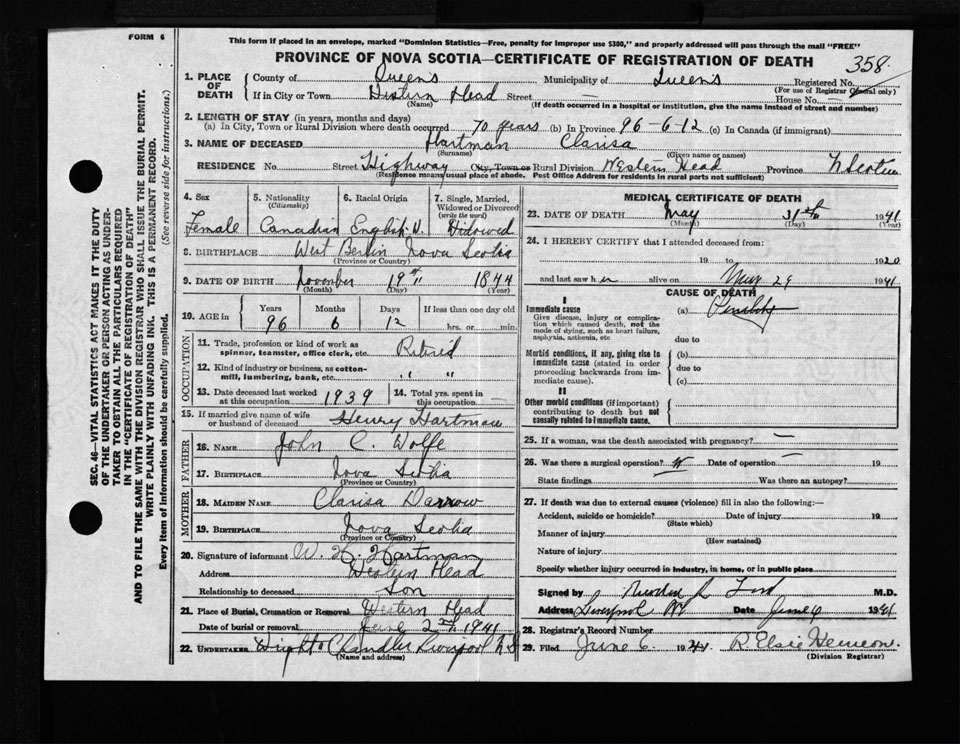 FORM 6
This form if placed in an envelope, marked "Dominion Statistics—Free, penalty for improper use $300," and properly addressed will pass through the mail "FREE"
PROVINCE OF NOVA SCOTIA—CERTIFICATE OF REGISTRATION OF DEATH
358
1. PLACE OF DEATH
County of Queens Municipality of Queens Registered No.
(For use of Registrar General only)
If in City or Town Western Head Street — House No. —
(Name) (If death occurred in a hospital or institution, give the name instead of street and number)
2. LENGTH OF STAY (in years, months and days)
(a) In City, Town or Rural Division where death occurred 70 years (b) In Province 96-6-12 (c) In Canada (if immigrant)
3. NAME OF DECEASED Hartman Clarisa
(Surname) (Given name or names)
RESIDENCE No. Street Highway City, Town or Rural Division Western Head Province N. Scotia
(Residence means usual place of abode. Post Office Address for residents in rural parts not sufficient)
4. Sex 5. Nationality (Citizenship) 6. Racial Origin 7. Single, Married, Widowed or Divorced (write the word)
Female Canadian English Widowed
8. BIRTHPLACE West Berlin Nova Scotia
(Province or Country)
9. DATE OF BIRTH November 19th 1844
(Month) (Day) (Year)
10. AGE in Years Months Days If less than one day old
96 6 12 hrs. or min.
OCCUPATION
11. Trade, profession or kind of work as spinner, teamster, office clerk, etc. Retired
12. Kind of industry or business, as cotton-mill, lumbering, bank, etc. " "
13. Date deceased last worked at this occupation 1939 14. Total yrs. spent in this occupation —
15. If married give name of wife or husband of deceased Henry Hartman
FATHER
16. NAME John C. Wolfe
17. BIRTHPLACE Nova Scotia
(Province or Country)
MOTHER
18. MAIDEN NAME Clarisa Darrow
19. BIRTHPLACE Nova Scotia
(Province or Country)
20. Signature of informant W. H. Hartman
Address Western Head
Relationship to deceased Son
21. Place of Burial, Cremation or Removal Western Head
Date of burial or removal June 2nd, 1941
22. UNDERTAKER Chandler Liverpool N.S
(Name and address)
MEDICAL CERTIFICATE OF DEATH
23. DATE OF DEATH May 31st 1941
(Month) (Day) (Year)
24. I HEREBY CERTIFY that I attended deceased from:
19 to 1920
and last saw her alive on May 29 1941
CAUSE OF DEATH
I
Immediate cause
Give disease, injury or complication which caused death, not the mode of dying, such as heart failure, asphyxia, asthenia, etc
(a) Senility
due to
Morbid conditions, if any, giving rise to immediate cause (stated in order proceeding backwards from immediate cause).
(b)
due to
(c)
II
Other morbid conditions (if important) contributing to death but not causally related to immediate cause.
25. If a woman, was the death associated with pregnancy? —
26. Was there a surgical operation? Date of operation — 19
State findings Was there an autopsy?
27. If death was due to external causes (violence) fill in also the following:—
Accident, suicide or homicide? Date of injury 19
(State which)
Manner of injury
(How sustained)
Nature of injury
Specify whether injury occurred in industry, in home, or in public place
Signed by M.D.
Address Liverpool NS Date June 6 1941
28. Registrar's Record Number
29. Filed June 6. 1941 R. Elsie
(Division Registrar)
SEC. 46—VITAL STATISTICS ACT MAKES IT THE DUTY
OF THE UNDERTAKER OR PERSON ACTING AS UNDER-
TAKER TO OBTAIN ALL THE PARTICULARS REQUIRED
IN THE "CERTIFICATE OF REGISTRATION OF DEATH"
AND TO FILE THE SAME WITH THE DIVISION REGISTRAR WHO SHALL ISSUE THE BURIAL PERMIT.
WRITE PLAINLY WITH UNFADING INK. THIS IS A PERMANENT RECORD.
Every item of information should be carefully supplied. (See reverse side for instructions.)